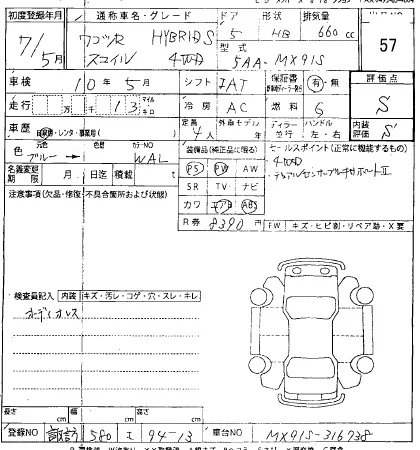 初度登録年月 通称車名・グレード ドア 形状 排気量
7/5月 ワゴンR HYBRID S 5 HB 660 cc 57
スマイル 4WD 型式 5AA-MX91S
車検 10年5月 シフト IAT 保証書 有・無 評価点
走行 万 千 13 マイル キロ 冷房 AC 燃料 G S
車歴 自家用・レンタ・事業用( ) 定員 4人 外車モデル 年 ディーラー 並行 ハンドル 左・右 内装評価 S
色 元色 ブルー 色替 カラーNO WAL 装備品(純正品に限る) セールスポイント(正常に機能するもの)
名義変更期限 月 日迄 積載 t PS PW AW ・4WD
注意事項(欠品・修復・不具合箇所および状態) SR TV ナビ ・デュアルセンサーブレーキサポートⅡ
カワ エアB ABS
R券 8390円 FW キズ・ヒビ割・リペア跡・X要
検査員記入 内装 キズ・汚レ・コゲ・穴・スレ・キレ
オーディオレス
長さ cm 幅 cm 高さ cm
登録NO 諏訪 580 え 94-13 車台NO MX91S-316738